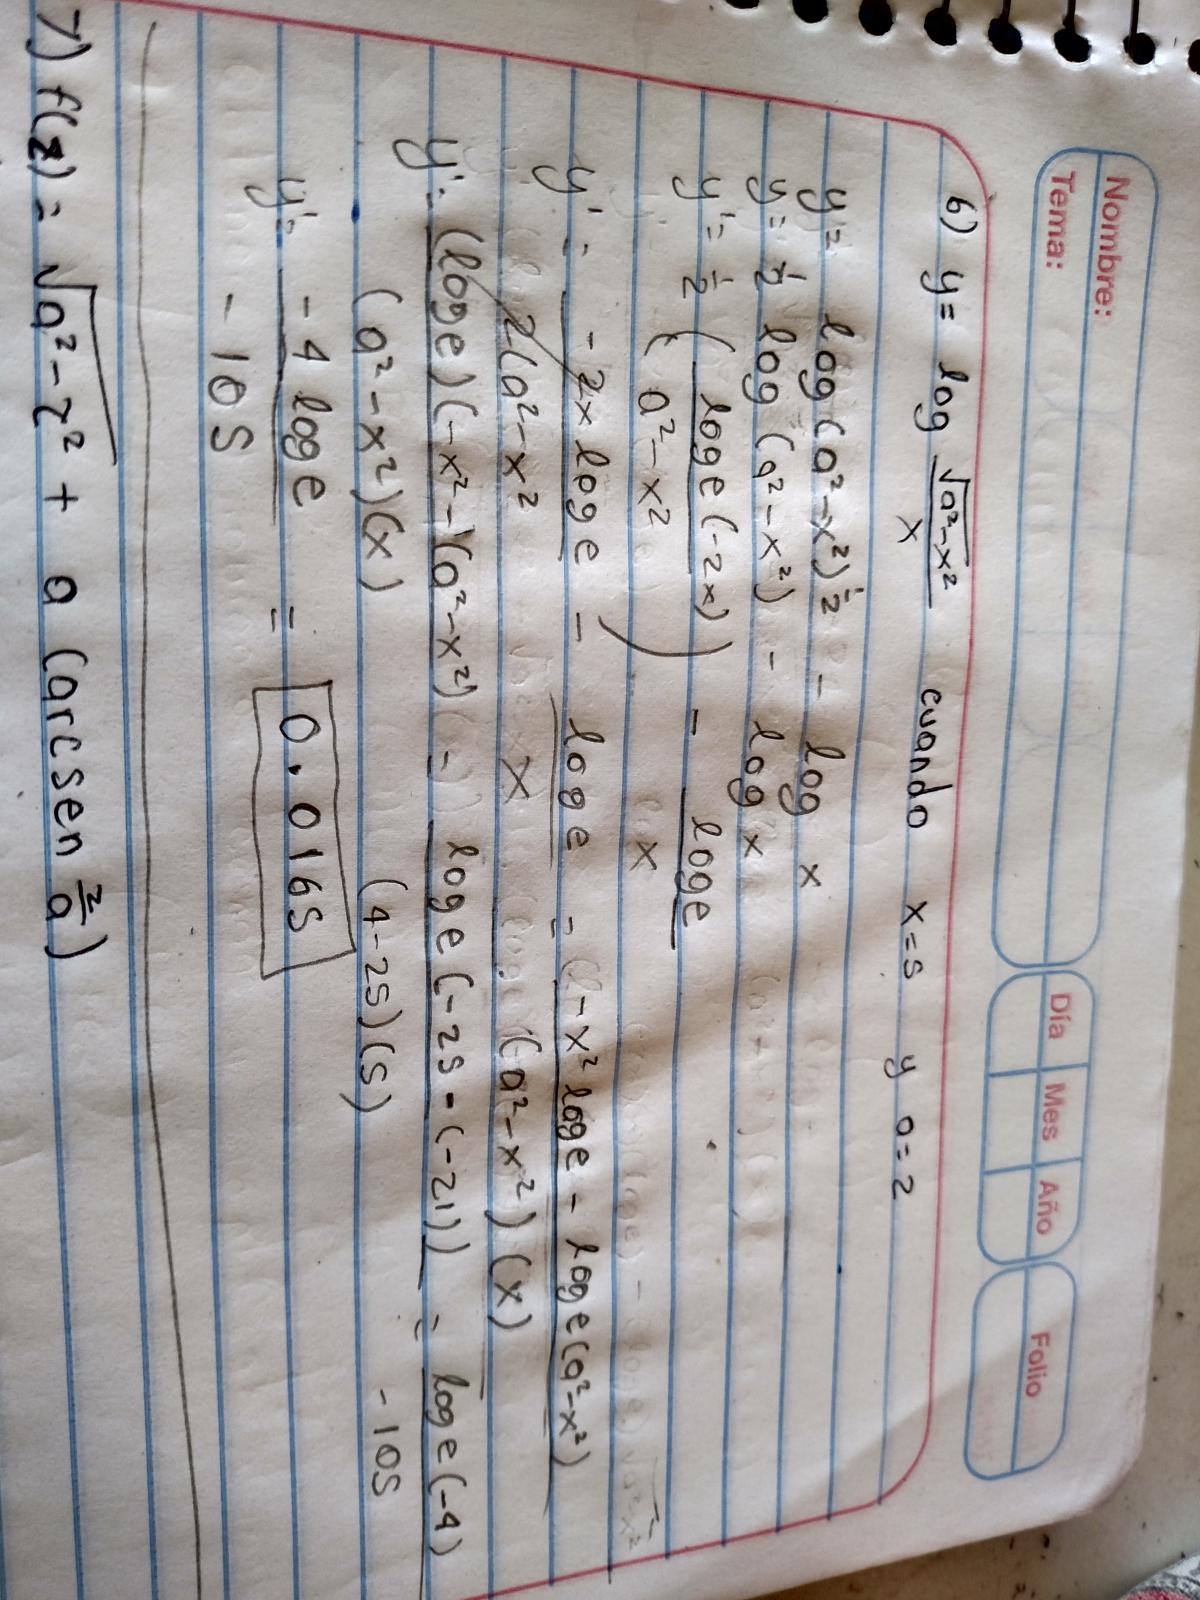 Nombre:
Tema:
Día Mes Año
Folio
6) y= log √a²-x² / x cuando x=5 y a=2
y= log (a²-x²)^½ - log x
y= ½ log (a²-x²) - log x
y'= ½ ( log e (-2x) / a²-x² ) - log e / x
y'= -2x log e / 2(a²-x² - log e / x = -x² log e - log e (a²-x²) / (a²-x²)(x)
y'= (log e)(-x²-(a²-x²) / (a²-x²)(x) = log e (-25-(-21)) / (4-25)(5) = log e (-4) / -105
y'= -4 log e / -105 = 0.0165
7) f(z) = √a²-z² + a (arcsen z/a)